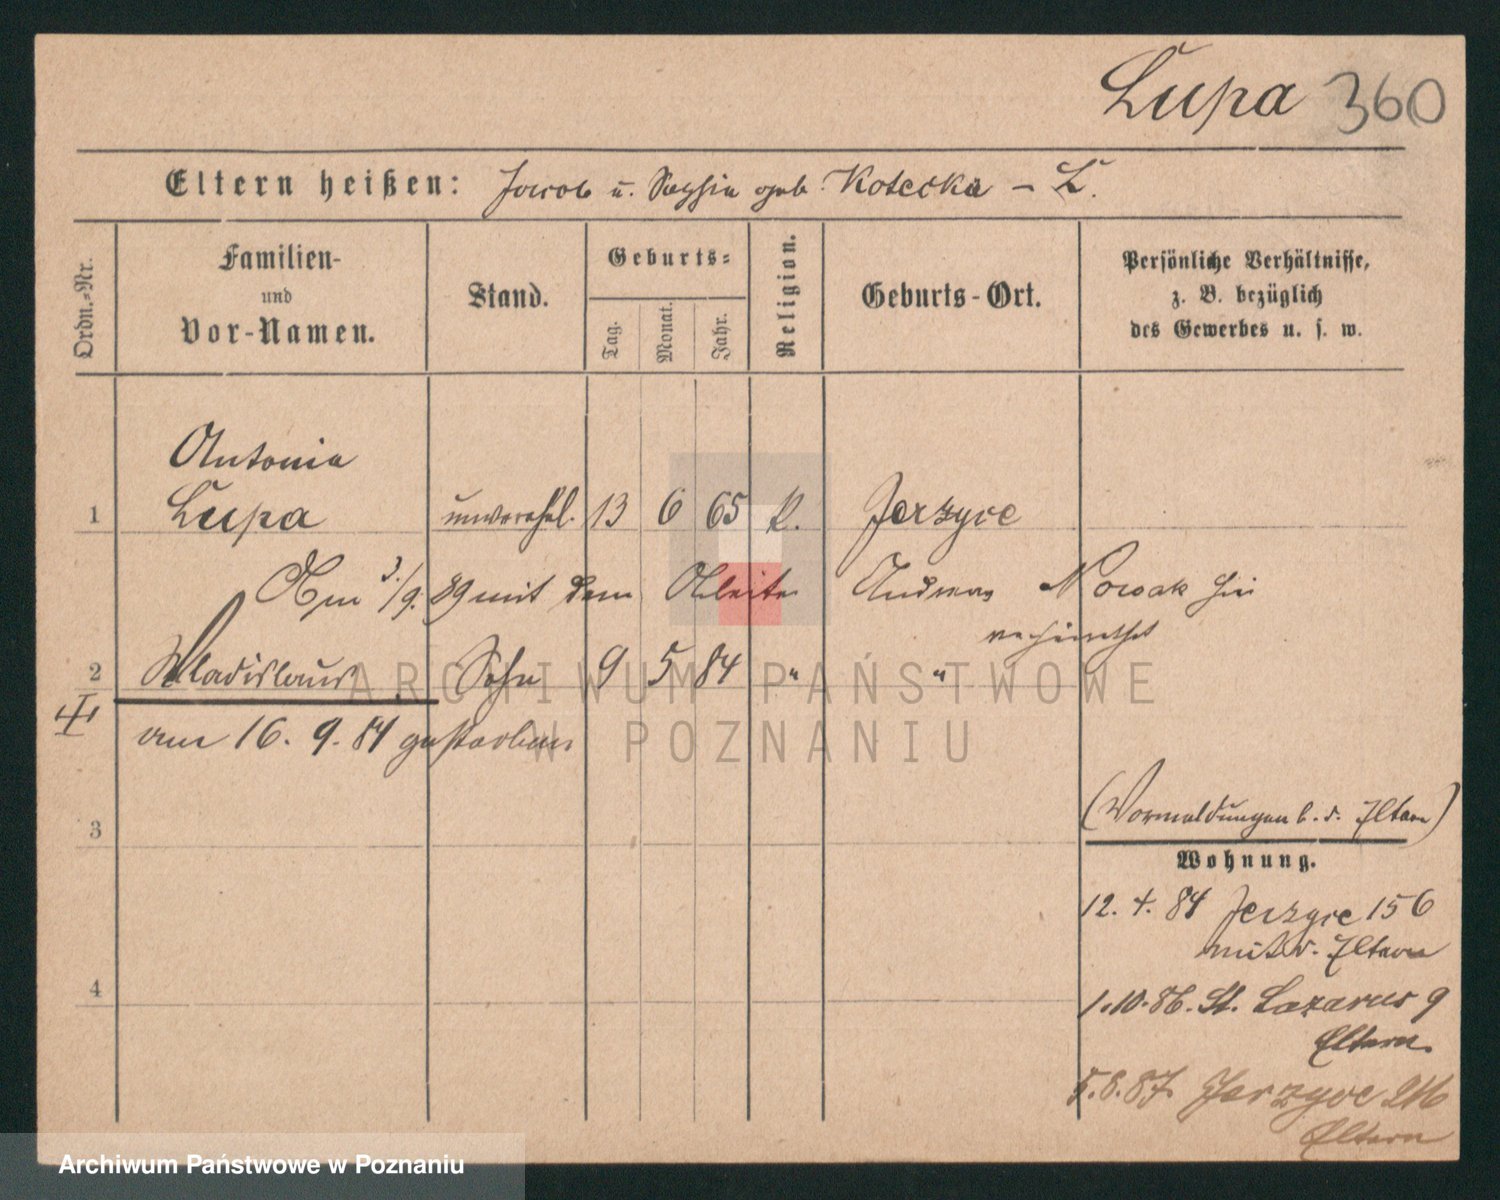 Lupa 360
Eltern heißen: Jacob u. geb. Kotecka - L.
Ordn.-Nr.
Familien-
und
Vor-Namen.
Stand.
Geburts-
Tag.
Monat.
Jahr.
Religion.
Geburts-Ort.
Persönliche Verhältnisse,
z. B. bezüglich
des Gewerbes u. s. w.
Antonia
1 Lupa unverehel. 13 6 65 k. Jerzyce
Am 3./9. 89 mit dem Arbeiter Andreas Nowak hier
verheirathet
2 Wladislaus Sohn 9 5 84 " "
am 16. 9. 84 gestorben
3
4
(Vormeldungen b. d. Eltern)
Wohnung.
12. 4. 84 Jerzyce 156
mit d. Eltern
1.10.86. St. Lazarus 9
Eltern.
5.8.87. Jerzyce 216
Eltern
ARCHIWUM PAŃSTWOWE
W POZNANIU
Archiwum Państwowe w Poznaniu